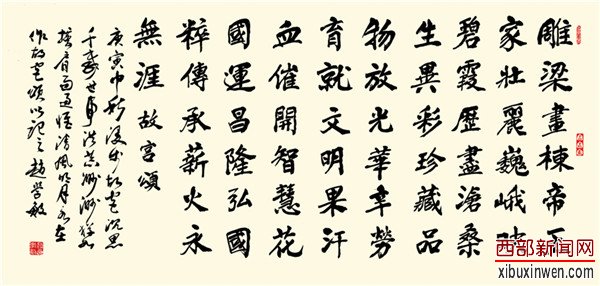 雕梁畫棟帝王
家壯麗巍峨映
碧霞歷盡滄桑
生異彩珍藏品
物放光華辛勞
育就文明果汗
血催開智慧花
國運昌隆弘國
粹傳承薪火永
無涯 故宮頌
庚寅中秋後步故宮沉思
千載世事洪荒渺渺猶如
清風明月永在
作故宮頌以記之趙學敏
西部新闻网
xibuxinwen.com